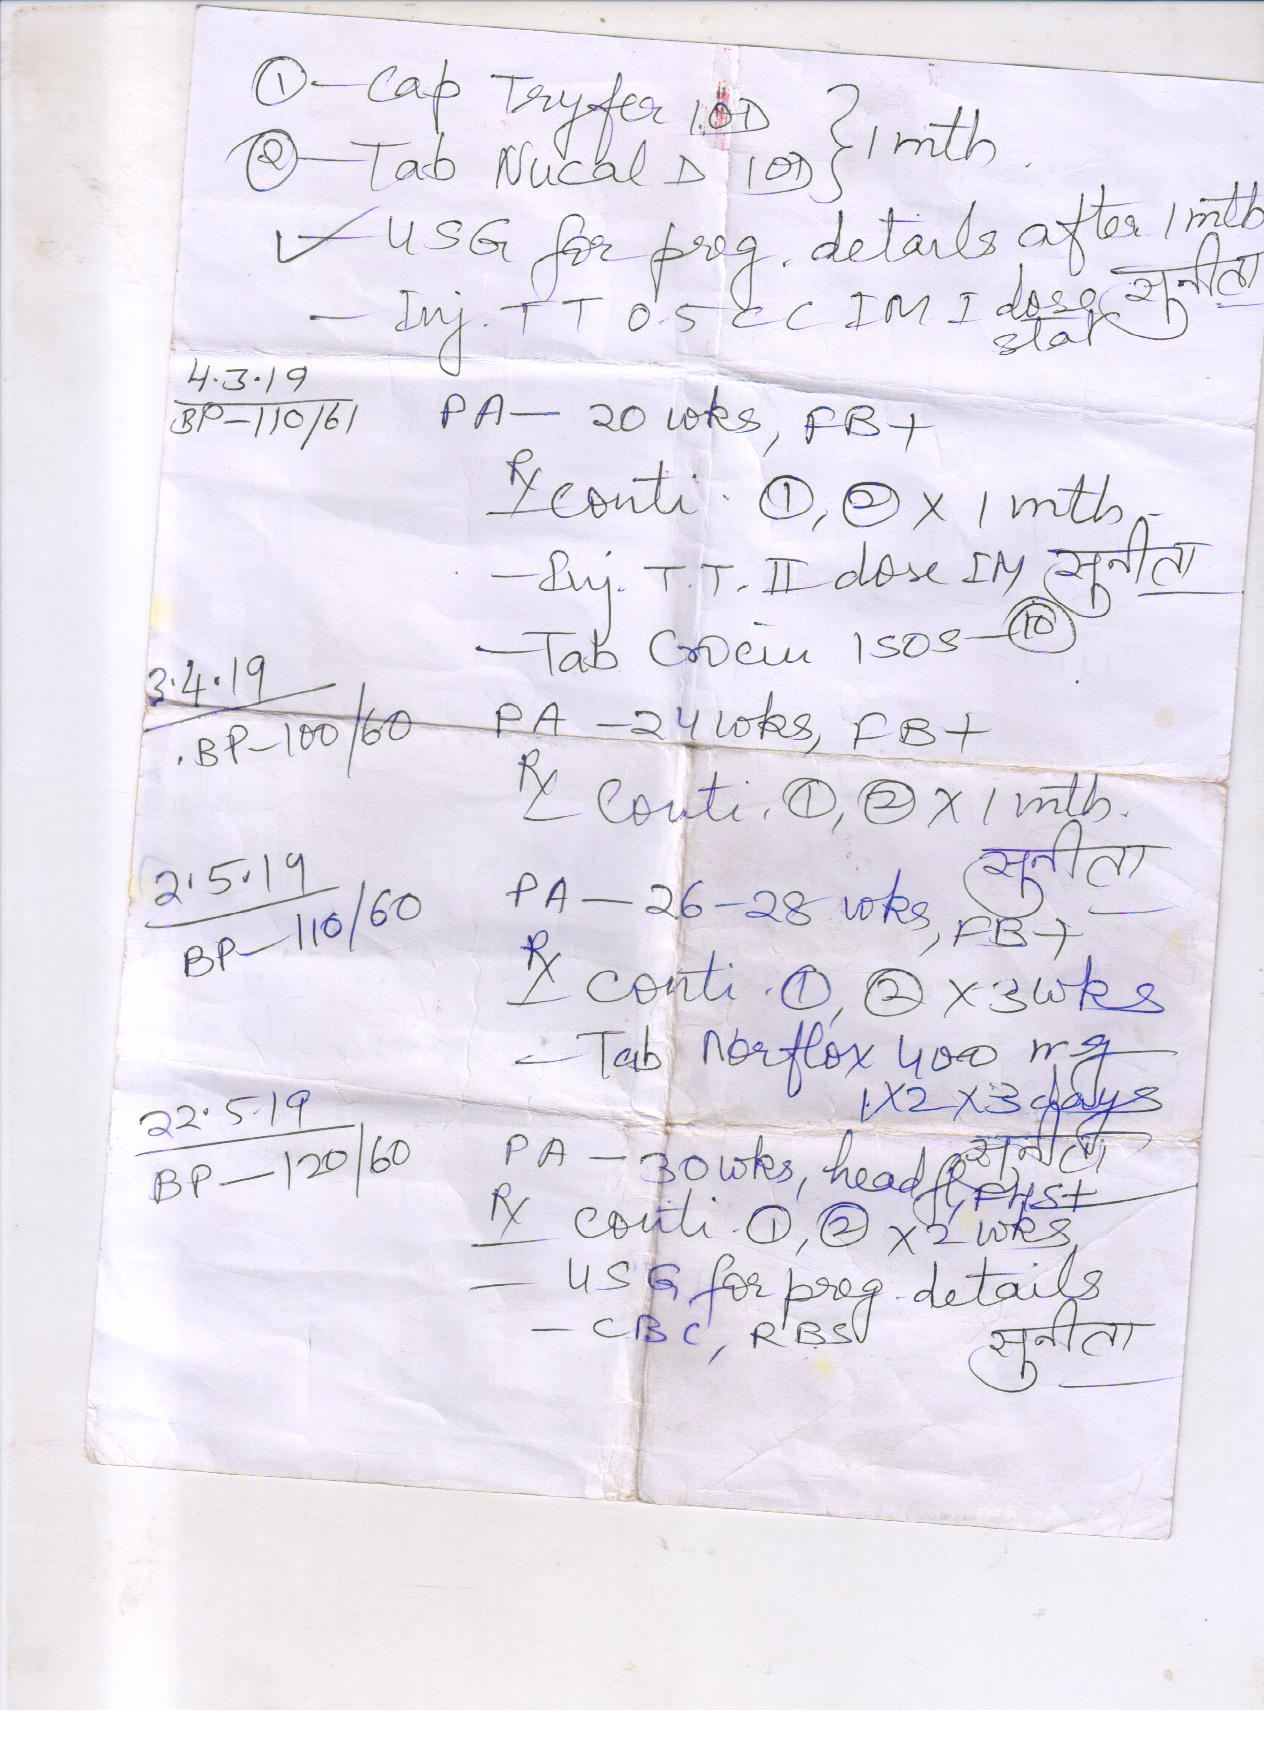 ① – Cap Tryfer 1 OD } 1 mth.
② – Tab Nucal D 1 OD
✓ – USG for preg. details after 1 mth
– Inj. TT 0.5 CC IM I dose stat सुनीता
4.3.19
BP – 110/61 PA – 20 wks, FB+
Rx conti. ①, ② x 1 mth.
– Inj. T.T. II dose IM सुनीता
– Tab Crocin 1 SOS – ⑩
3.4.19
BP – 100/60 PA – 24 wks, FB+
Rx Conti. ①, ② x 1 mth.
सुनीता
2.5.19
BP – 110/60 PA – 26–28 wks, FB+
Rx Conti. ①, ② x 3 wks
– Tab Norflox 400 mg
1 x 2 x 3 days
सुनीता
22.5.19
BP – 120/60 PA – 30 wks, head fl, FHS+
Rx conti. ①, ② x 2 wks
– USG for preg. details
– CBC, RBS सुनीता